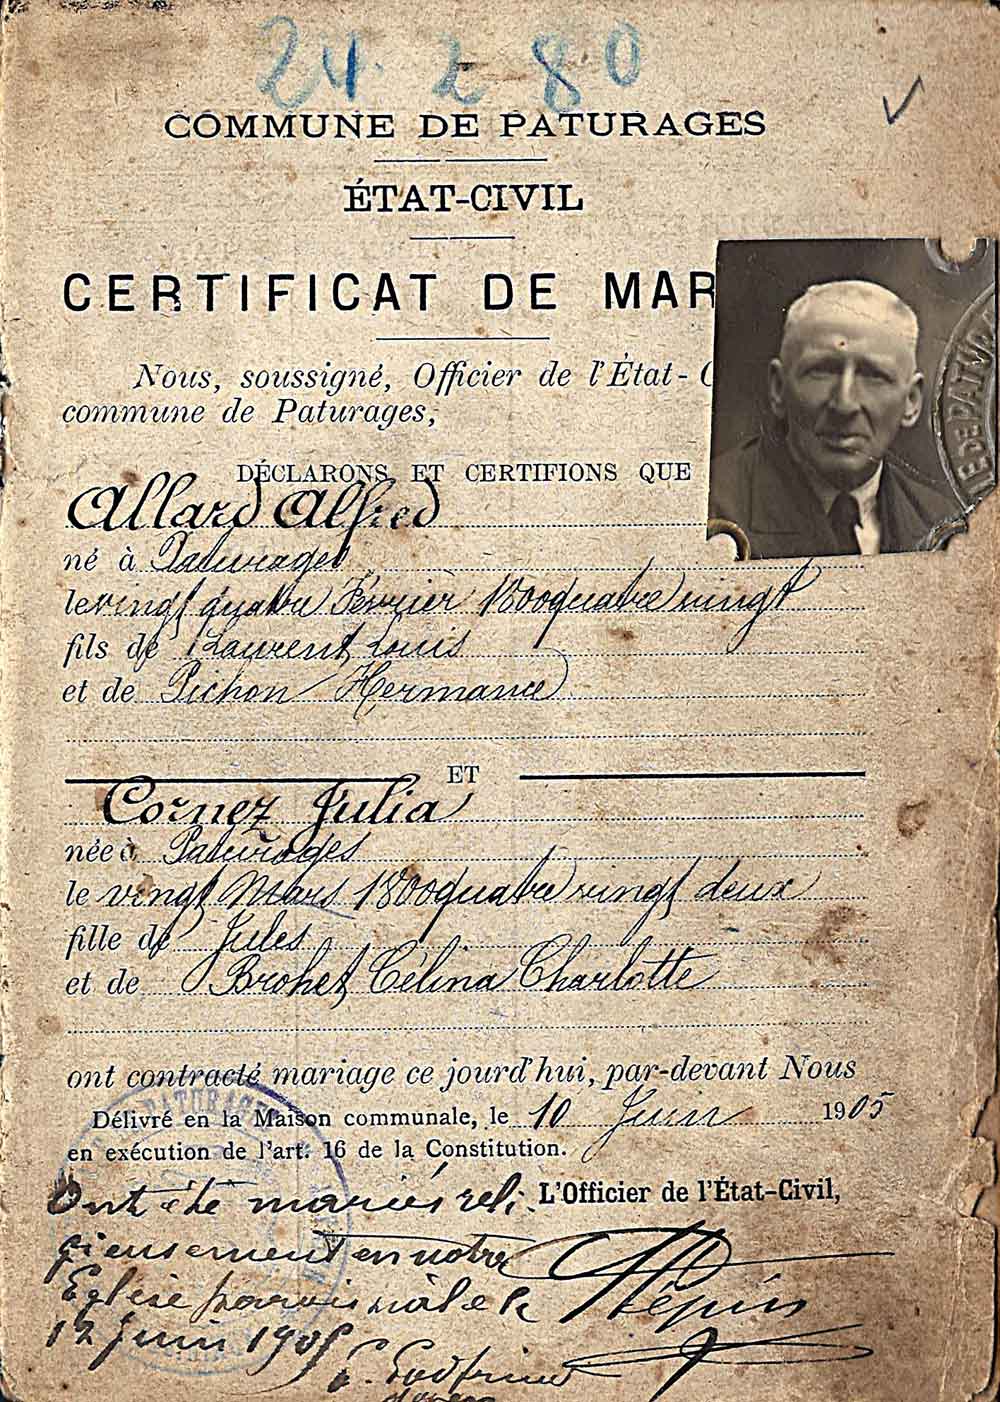 24. 2 80
COMMUNE DE PATURAGES
ÉTAT-CIVIL
CERTIFICAT DE MAR
Nous, soussigné, Officier de l'État-C
commune de Paturages,
DÉCLARONS ET CERTIFIONS QUE
Allard Alfred
né à Paturages
le vingt quatre Février 1800quatre vingt
fils de Laurent Louis
et de Pichon Hermance
ET
Cornez Julia
née à Paturages
le vingt Mars 1800quatre vingt deux
fille de Jules
et de Brohet Célina Charlotte
ont contracté mariage ce jourd'hui, par-devant Nous
Délivré en la Maison communale, le 10 Juin 1905
en exécution de l'art. 16 de la Constitution.
L'Officier de l'État-Civil,
Ont été mariés reli-
gieusement en notre
Eglise paroissiale le
12 Juin 1905
PATURAGES
E DE PATURA